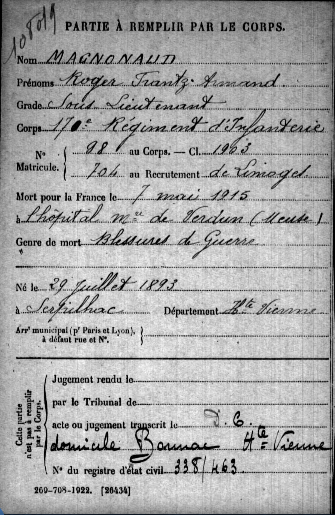 108019
PARTIE À REMPLIR PAR LE CORPS.
Nom MAGNONAUD
Prénoms Roger Frantz Armand
Grade Sous Lieutenant
Corps 170e Régiment d'Infanterie
N° Matricule. 98 au Corps. — Cl. 1913
704 au Recrutement de Limoges
Mort pour la France le 7 mai 1915
à l'hôpital mre de Verdun (Meuse)
Genre de mort Blessures de Guerre
Né le 29 Juillet 1893
à Serpilhac Département Hte Vienne
Arr' municipal (pr Paris et Lyon), à défaut rue et N°.
Cette partie n'est pas à remplir par le Corps.
Jugement rendu le
par le Tribunal de
acte ou jugement transcrit le D. C.
domicile Bonnac Hte Vienne
N° du registre d'état civil 338/463
269-708-1922. [26434]